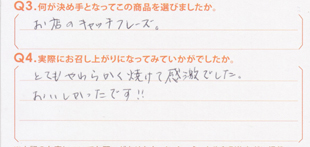 Q3.何が決め手となってこの商品を選びましたか。
お店のキャッチフレーズ。
Q4.実際にお召し上がりになってみていかがでしたか。
とてもやわらかく焼けて感激でした。
おいしかったです!!